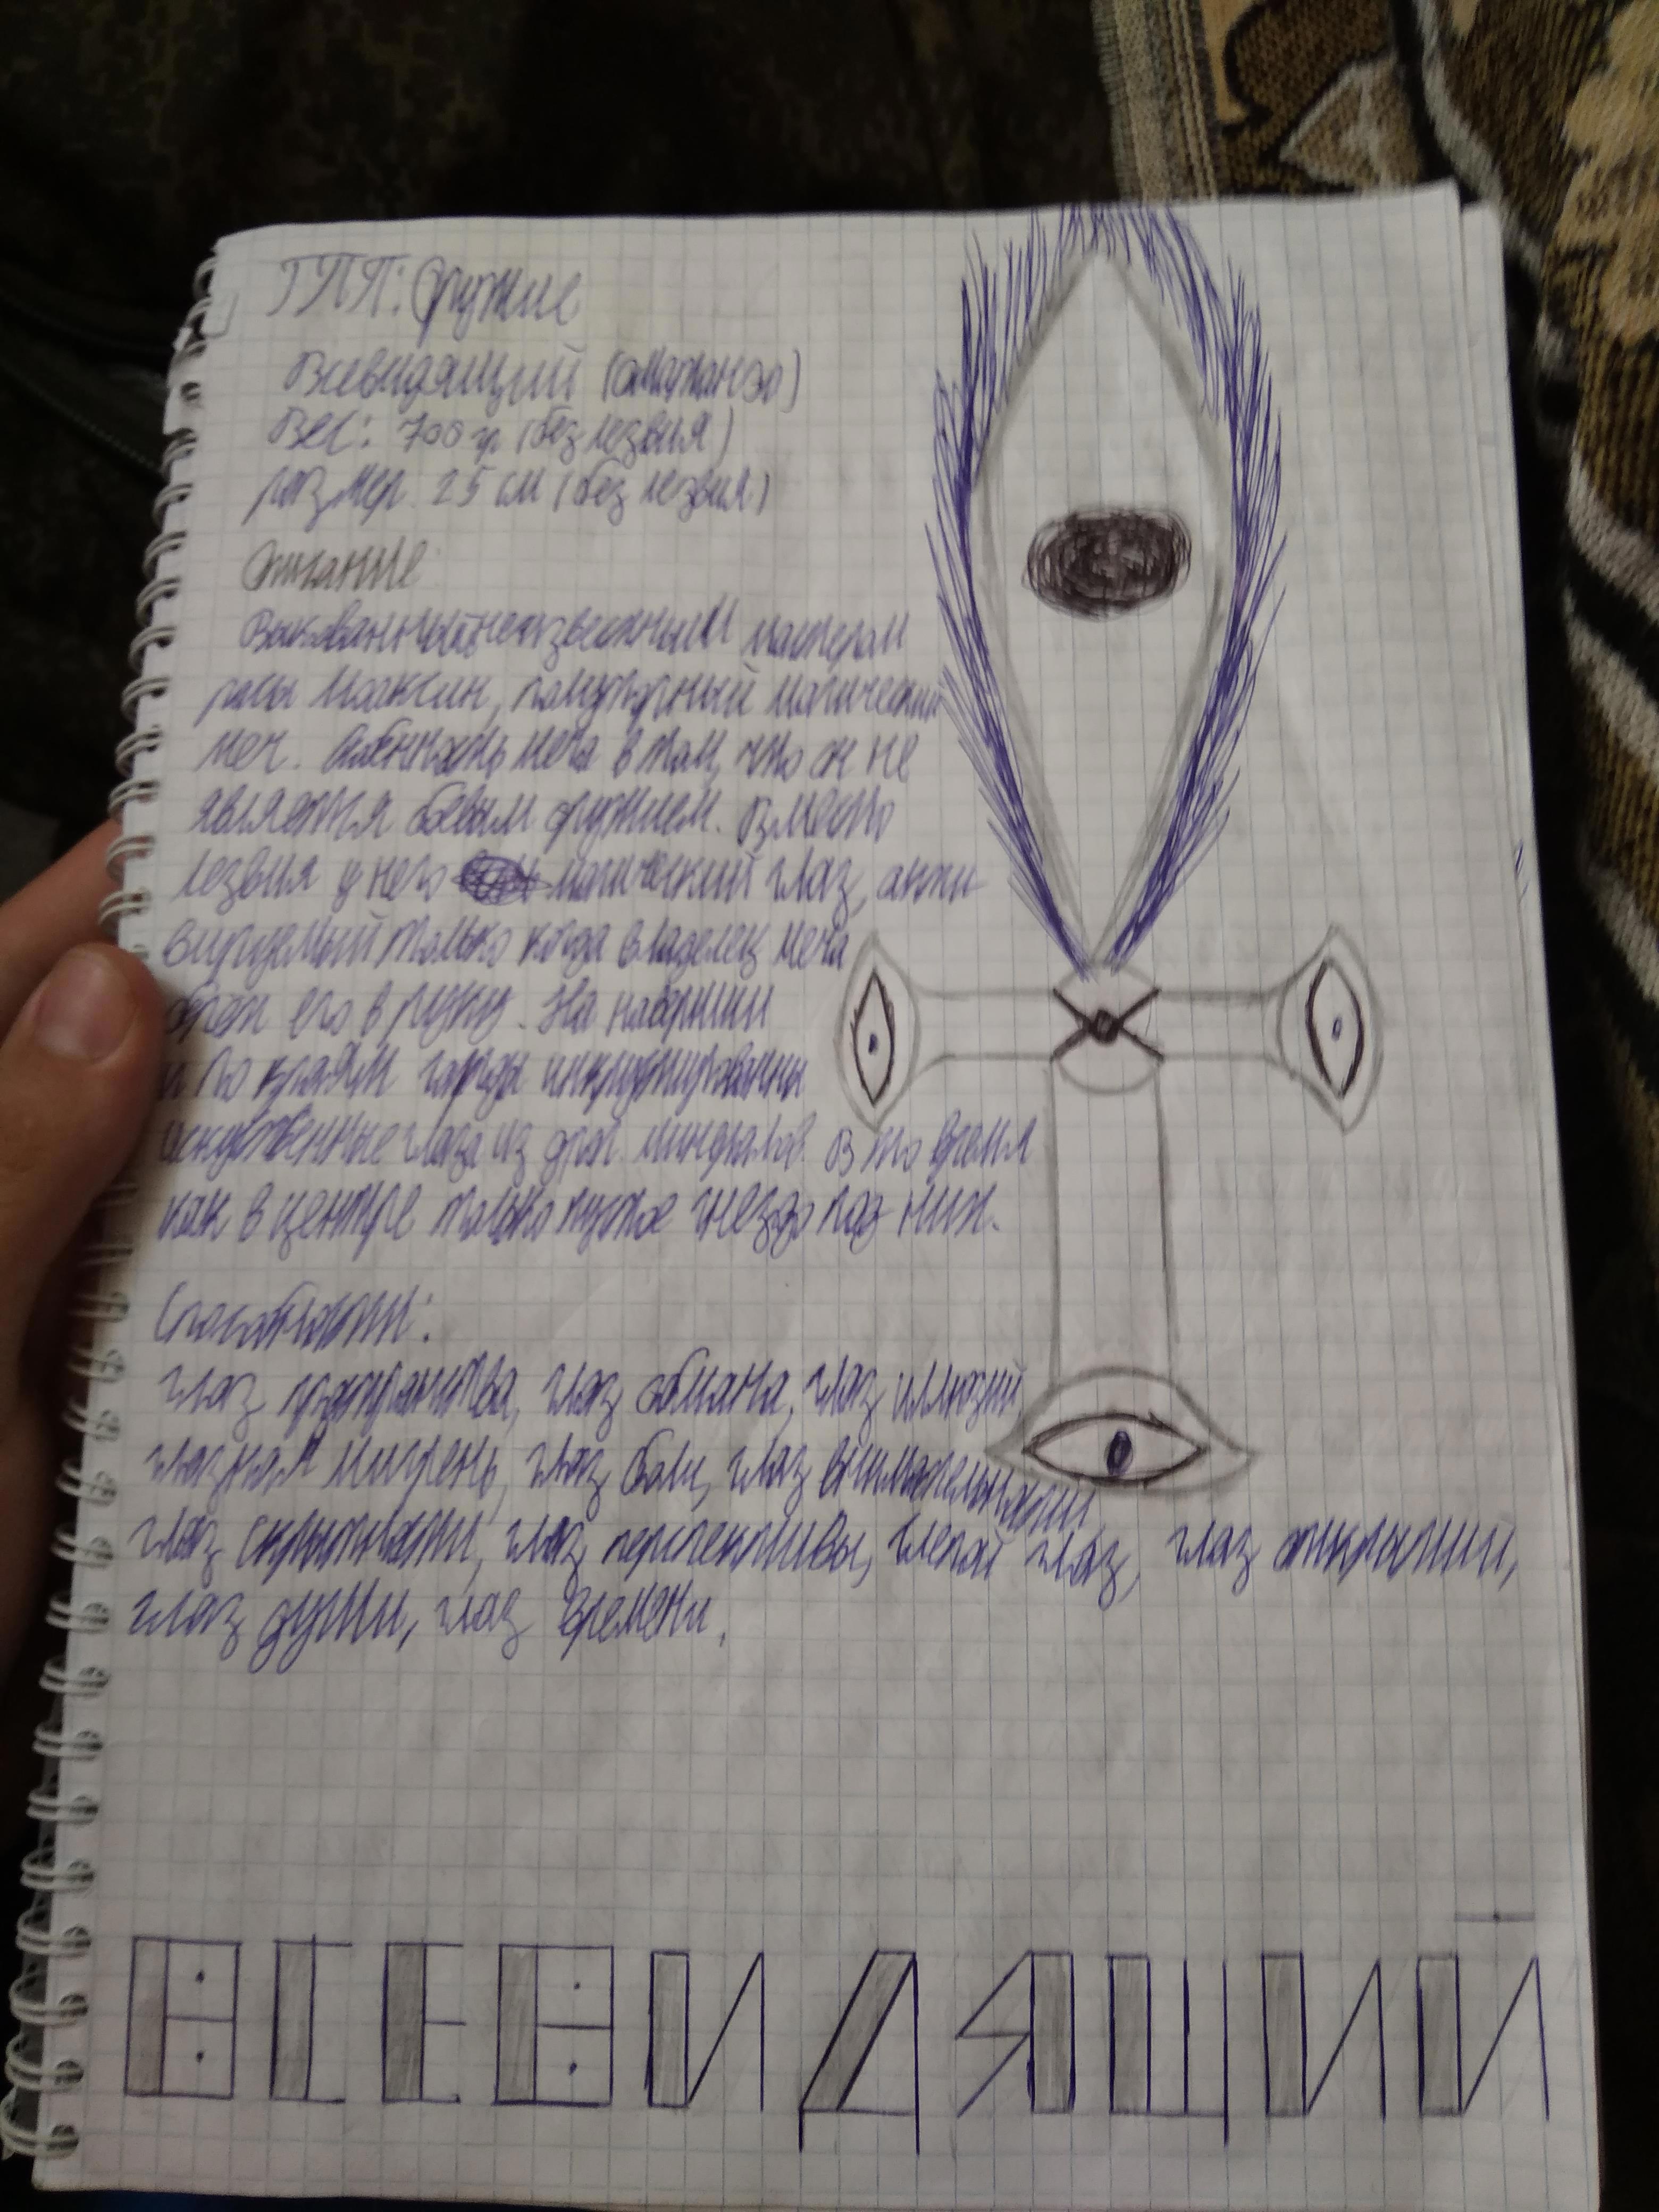 ТИП: Оружие
Всевидящий (
Вес: 700 гр (без лезвия)
размер. 25 см (без лезвия)
Описание:
Выкованный неизвестным мастером
расы полуторный магический
меч. Особенность меча в том, что он не
является боевым оружием. Вместо
лезвия у него магический глаз, акти
вируемый только когда владелец меча
берёт его в руку. На навершии
и по краям гарды инкрустированны
искуственные глаза из драг. минералов. В то время
как в центре только пустое гнездо под них.
Способности:
глаз пространства, глаз обмана, глаз иллюзий
глазная мигрень, глаз боли, глаз внимательности
глаз скрытности, глаз перспективы, слепой глаз, глаз
глаз души, глаз времени.
ВСЕВИДЯЩИЙ